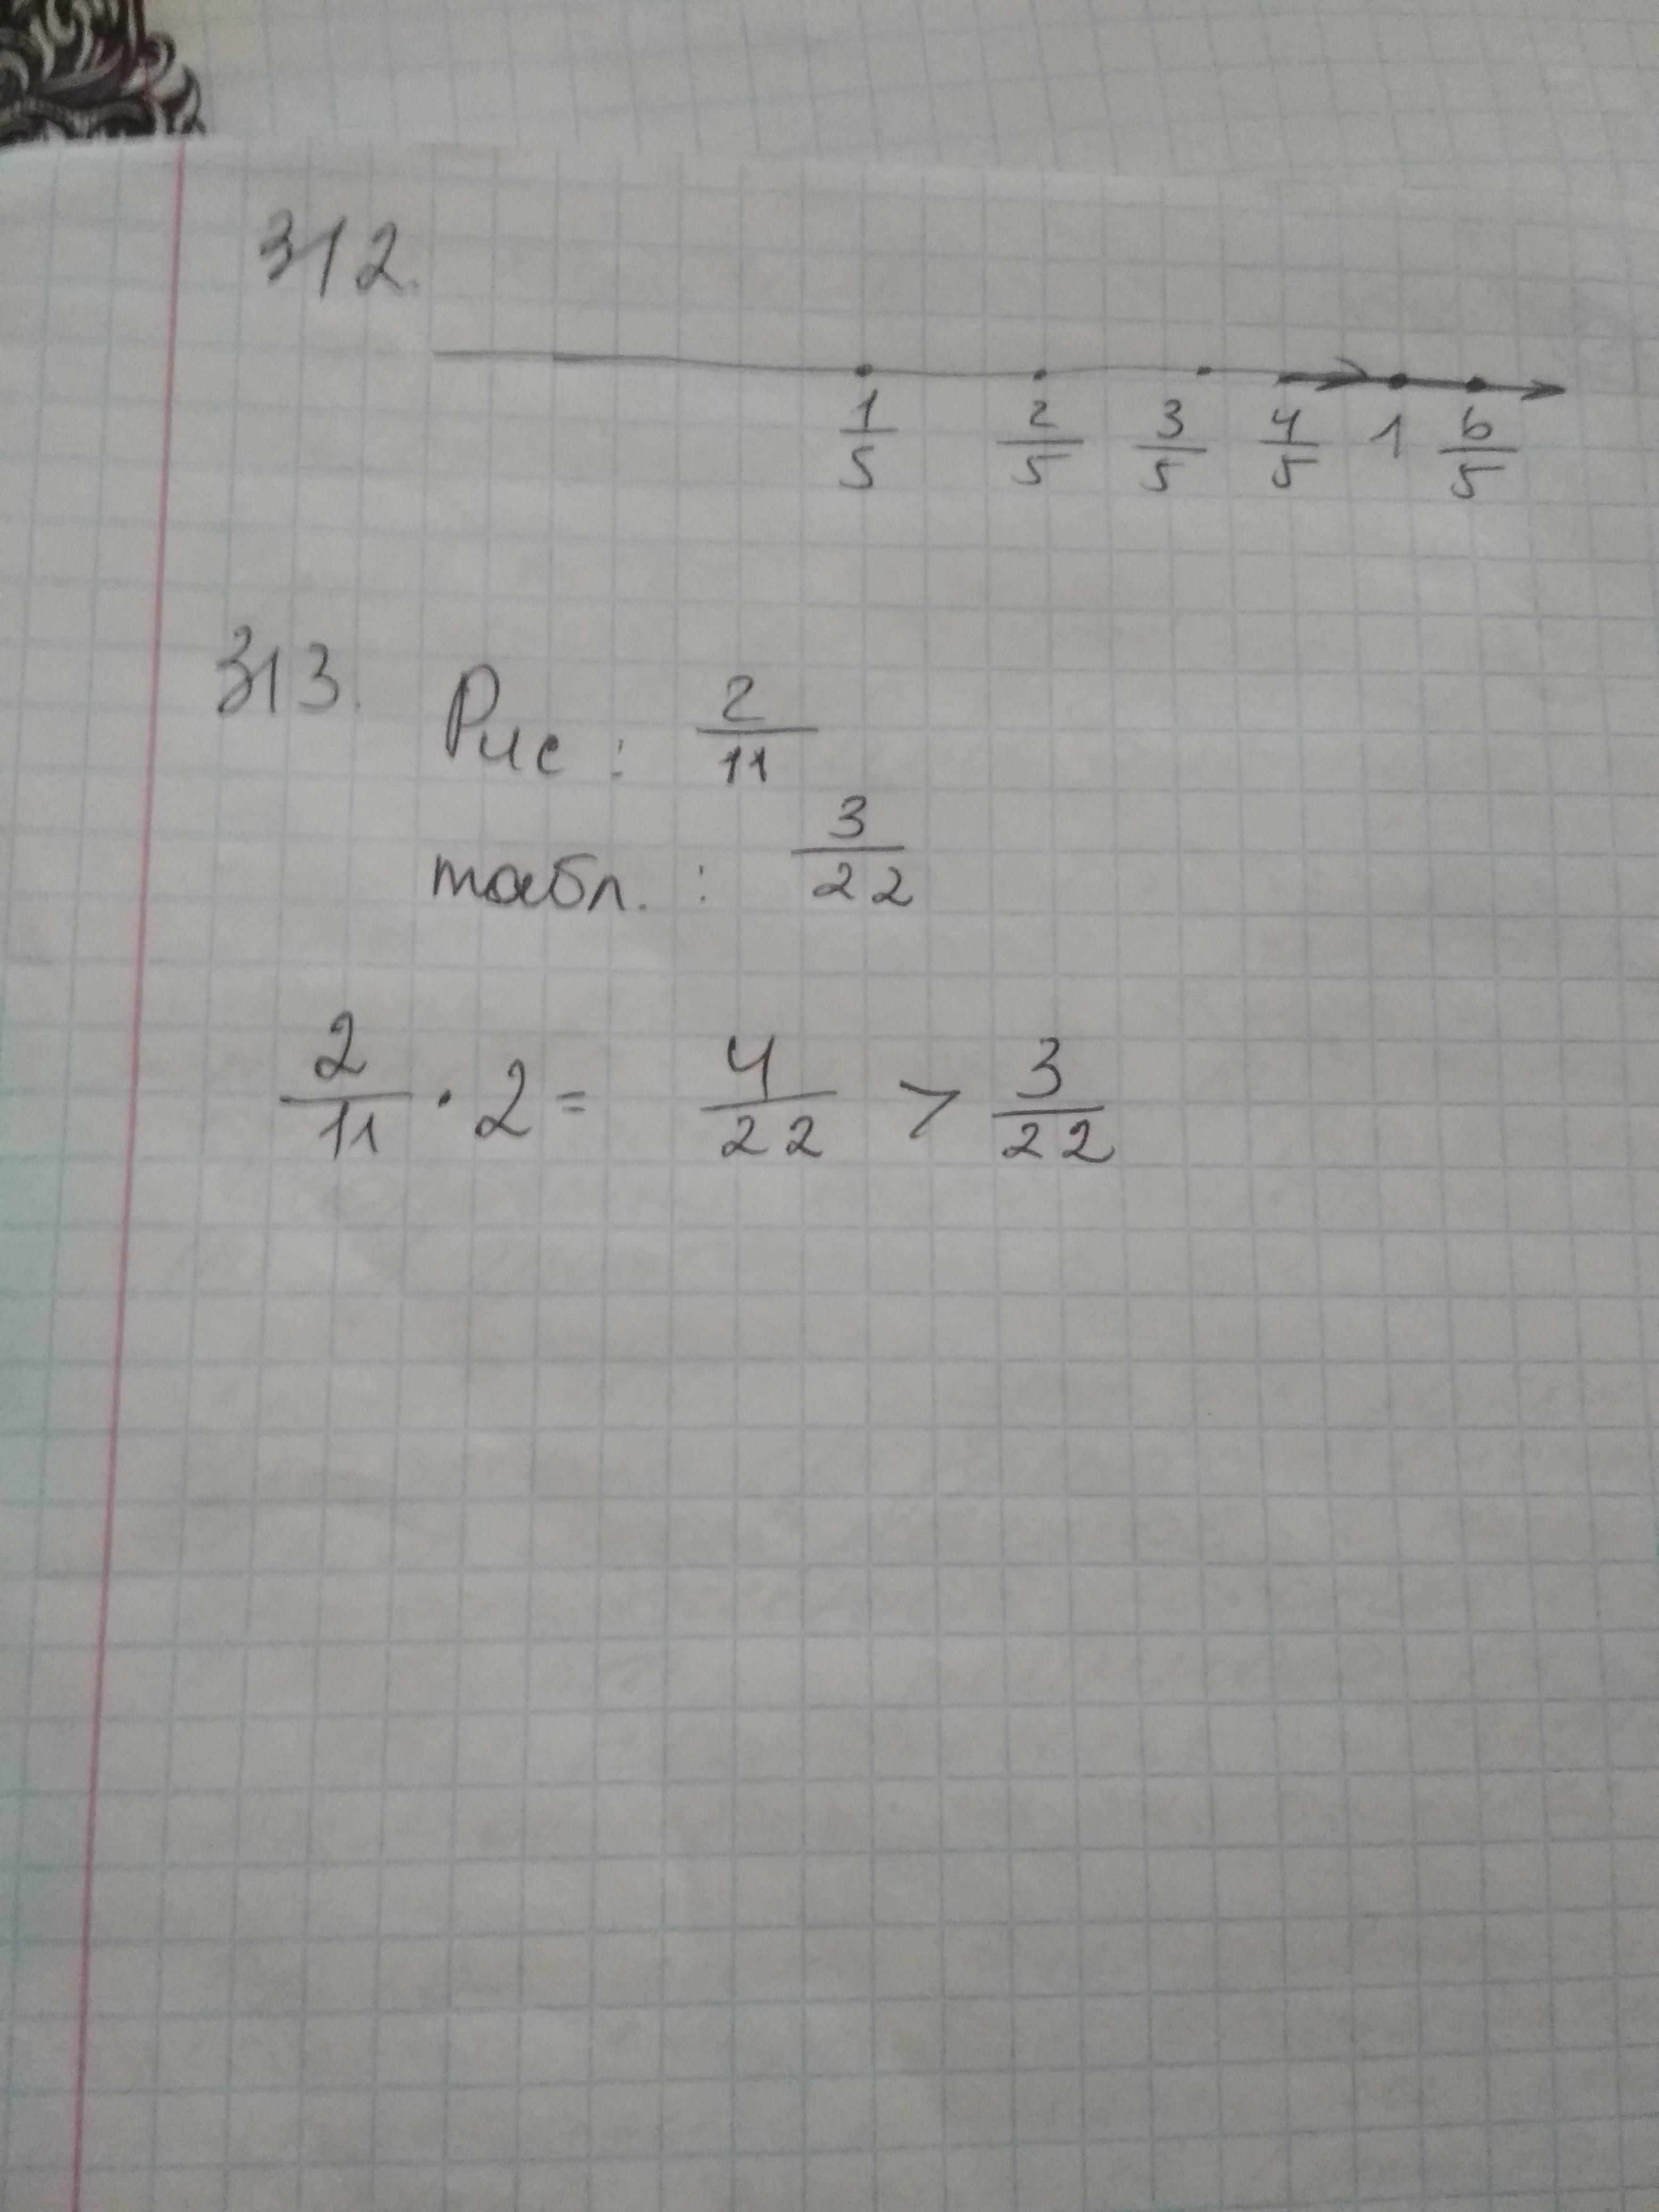 312.
1/5 2/5 3/5 4/5 1 6/5
313. Рис : 2/11
табл. : 3/22
2/11 · 2 = 4/22 > 3/22